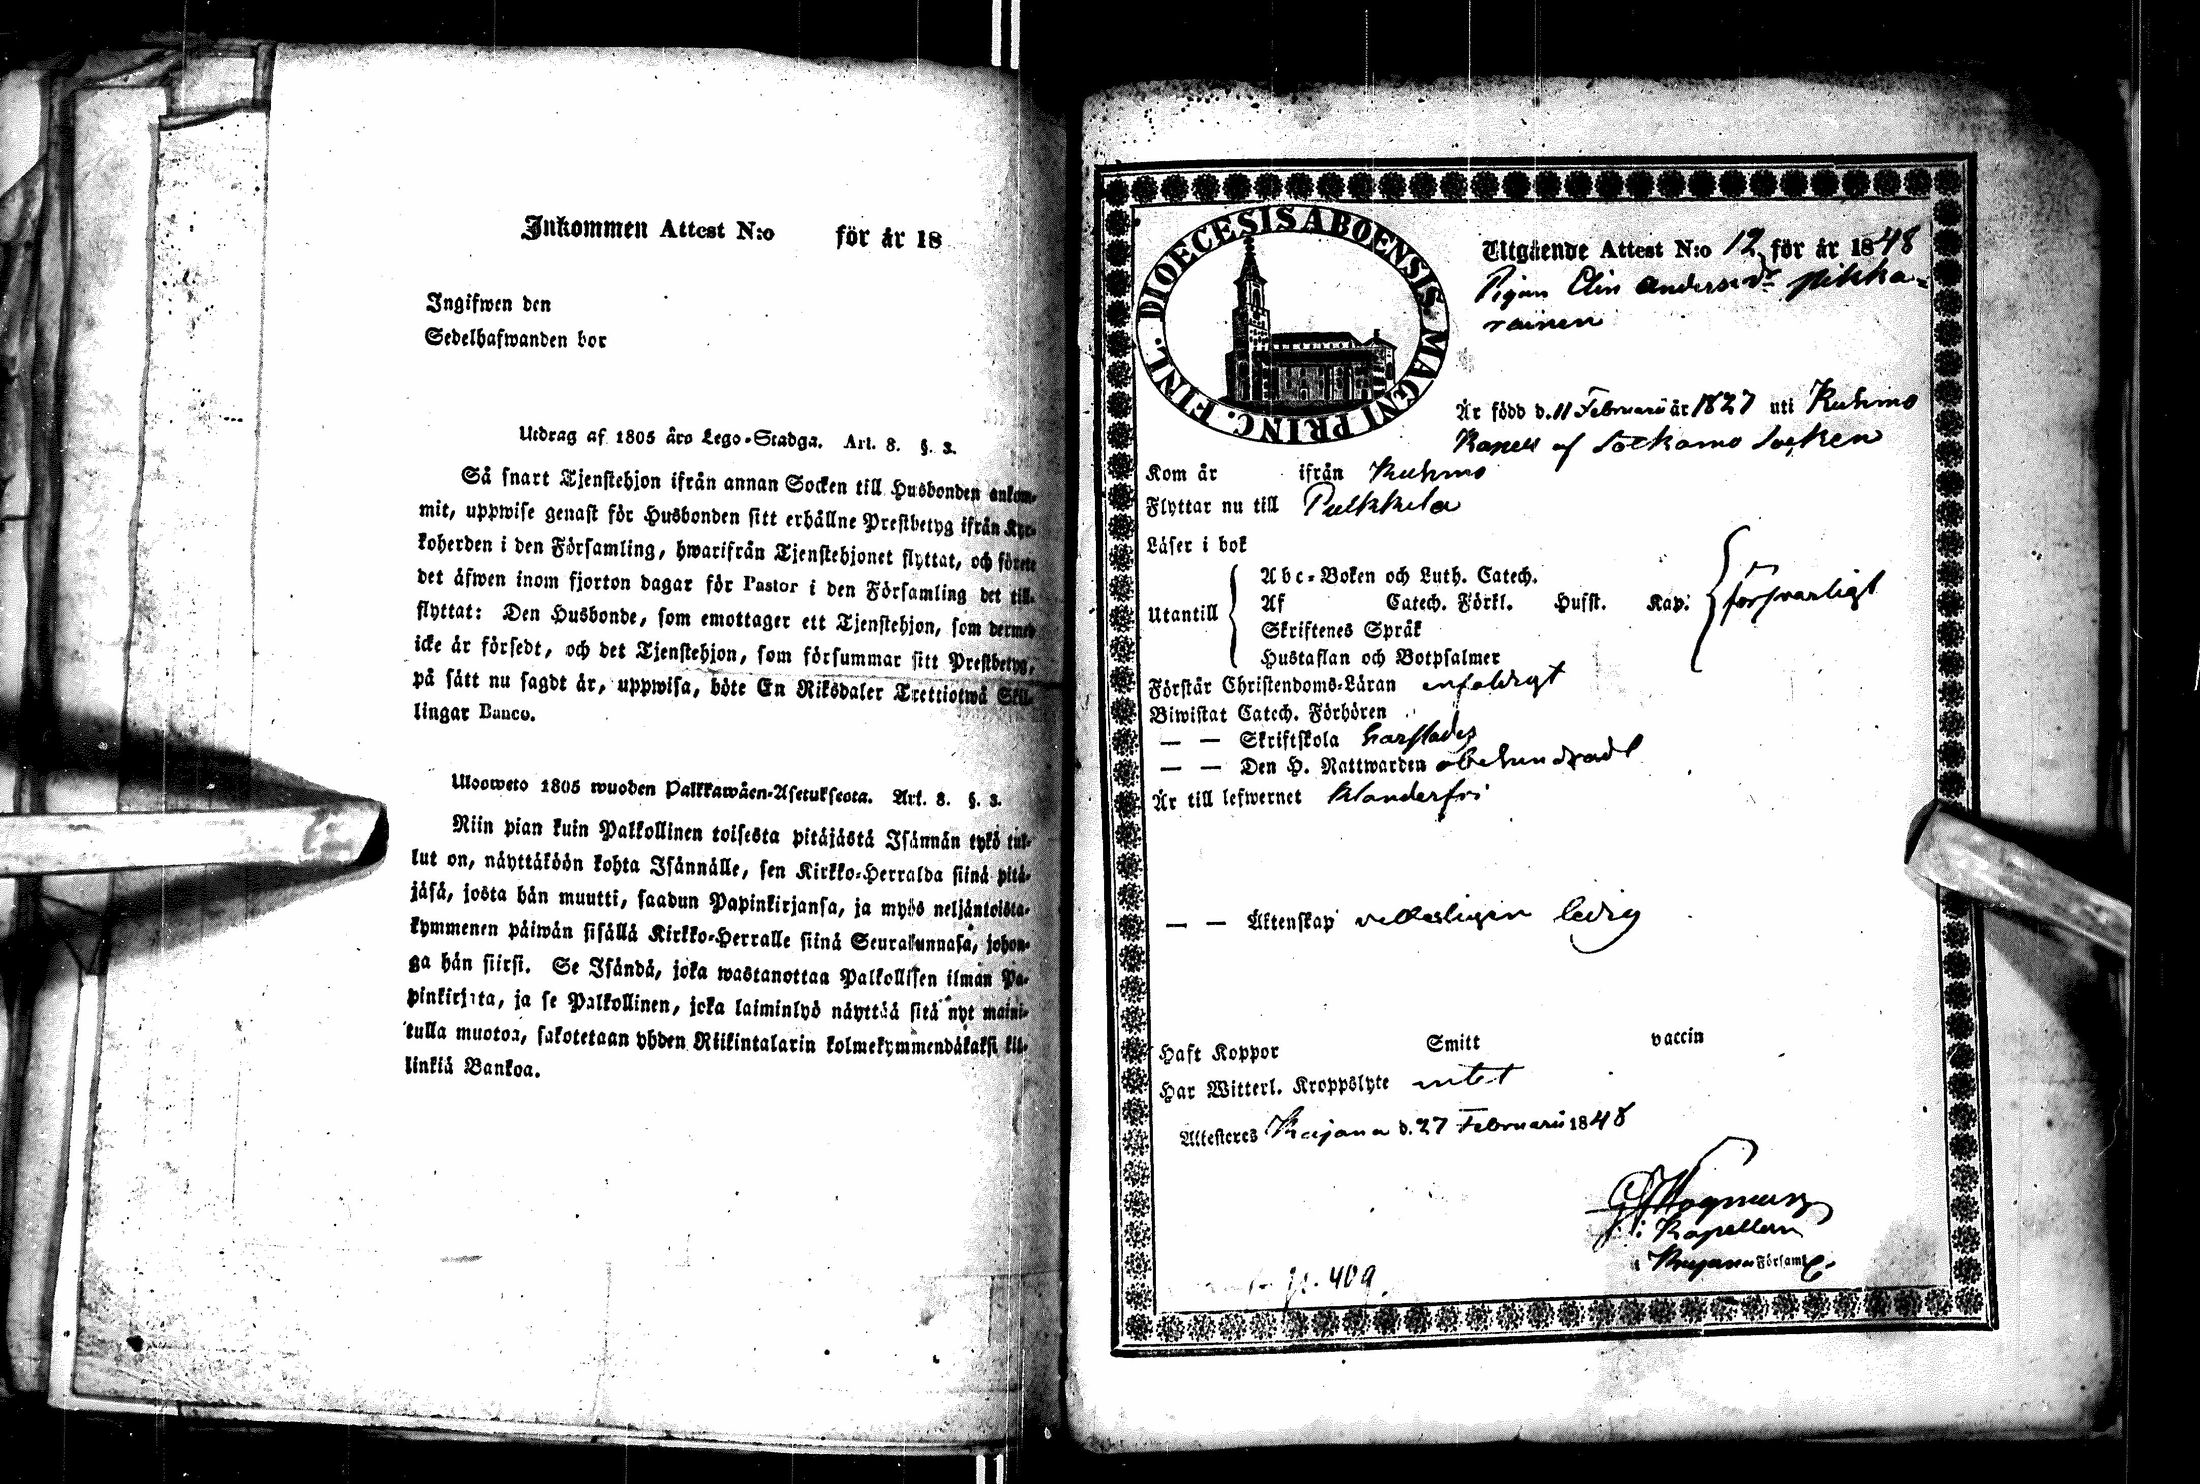 Inkommen Attest N:o för år 18
Ingifwen den
Sedelhafwanden bor
Utdrag af 1805 års Lego-Stadga. Art. 8. §. 3.
Så snart Tjenstehjon ifrån annan Socken till Husbonden ankom-
mit, uppwise genast för Husbonden sitt erhållne Prestbetyg ifrån Kyr-
koherden i den Församling, hwarifrån Tjenstehjonet flyttat, och förete
det äfwen inom fjorton dagar för Pastor i den Församling det till-
flyttat: Den Husbonde, som emottager ett Tjenstehjon, som dermed
icke är försedt, och det Tjenstehjon, som försummar sitt Prestbetyg,
på sätt nu sagdt är, uppwisa, böte En Riksdaler Trettiotwå Skil-
lingar Banco.
Ulosweto 1805 wuoden Palkkawäen-Asetuksesta. Art. 8. §. 3.
Niin pian kuin Palkollinen toisesta pitäjästä Isännän tykö tul-
lut on, näyttäköön kohta Isännälle, sen Kirkko-Herralda siinä pitä-
jäsä, josta hän muutti, saadun Papinkirjansa, ja myös neljäntoista-
kymmenen päiwän sisällä Kirkko-Herralle siinä Seurakunnasa, johon-
ga hän siirsi. Se Isändä, joka wastanottaa Palkollisen ilman Pa-
pinkirjata, ja se Palkollinen, joka laiminlyö näyttää sitä nyt maini-
tulla muotoa, sakotetaan yhden Riikintalarin kolmekymmendäkaksi kil-
linkiä Bankoa.
DIOECESIS ABOENSIS MAGNI PRINC. FINL.
Utgående Attest N:o 12 för år 1848
Pigan Elin Andersdr Pikka-
rainen
Är född d. 11 Februarii år 1827 uti Kuhmo
Kapell af Sotkamo Socken
Kom år ifrån Kuhmo
Flyttar nu till Pulkkila
Läser i bok
Utantill
Abc-Boken och Luth. Catech.
Af Catech. Förkl. Husst. Kap: försvarligt
Skriftenes Språk
Hustaflan och Botpsalmer
Förstår Christendoms-Läran enfaldigt
Biwistat Catech. Förhören
— — Skriftskola
— — Den H. Nattwarden obehindradt
Är till lefwernet klanderfri
— — Äktenskap veterligen ledig
Haft Koppor Smitt vaccin
Har Witterl. Kroppslyte intet
Attesteras Kajana d. 27 Februarii 1848
Kapellan
i Kajana Församl.
p. 409.